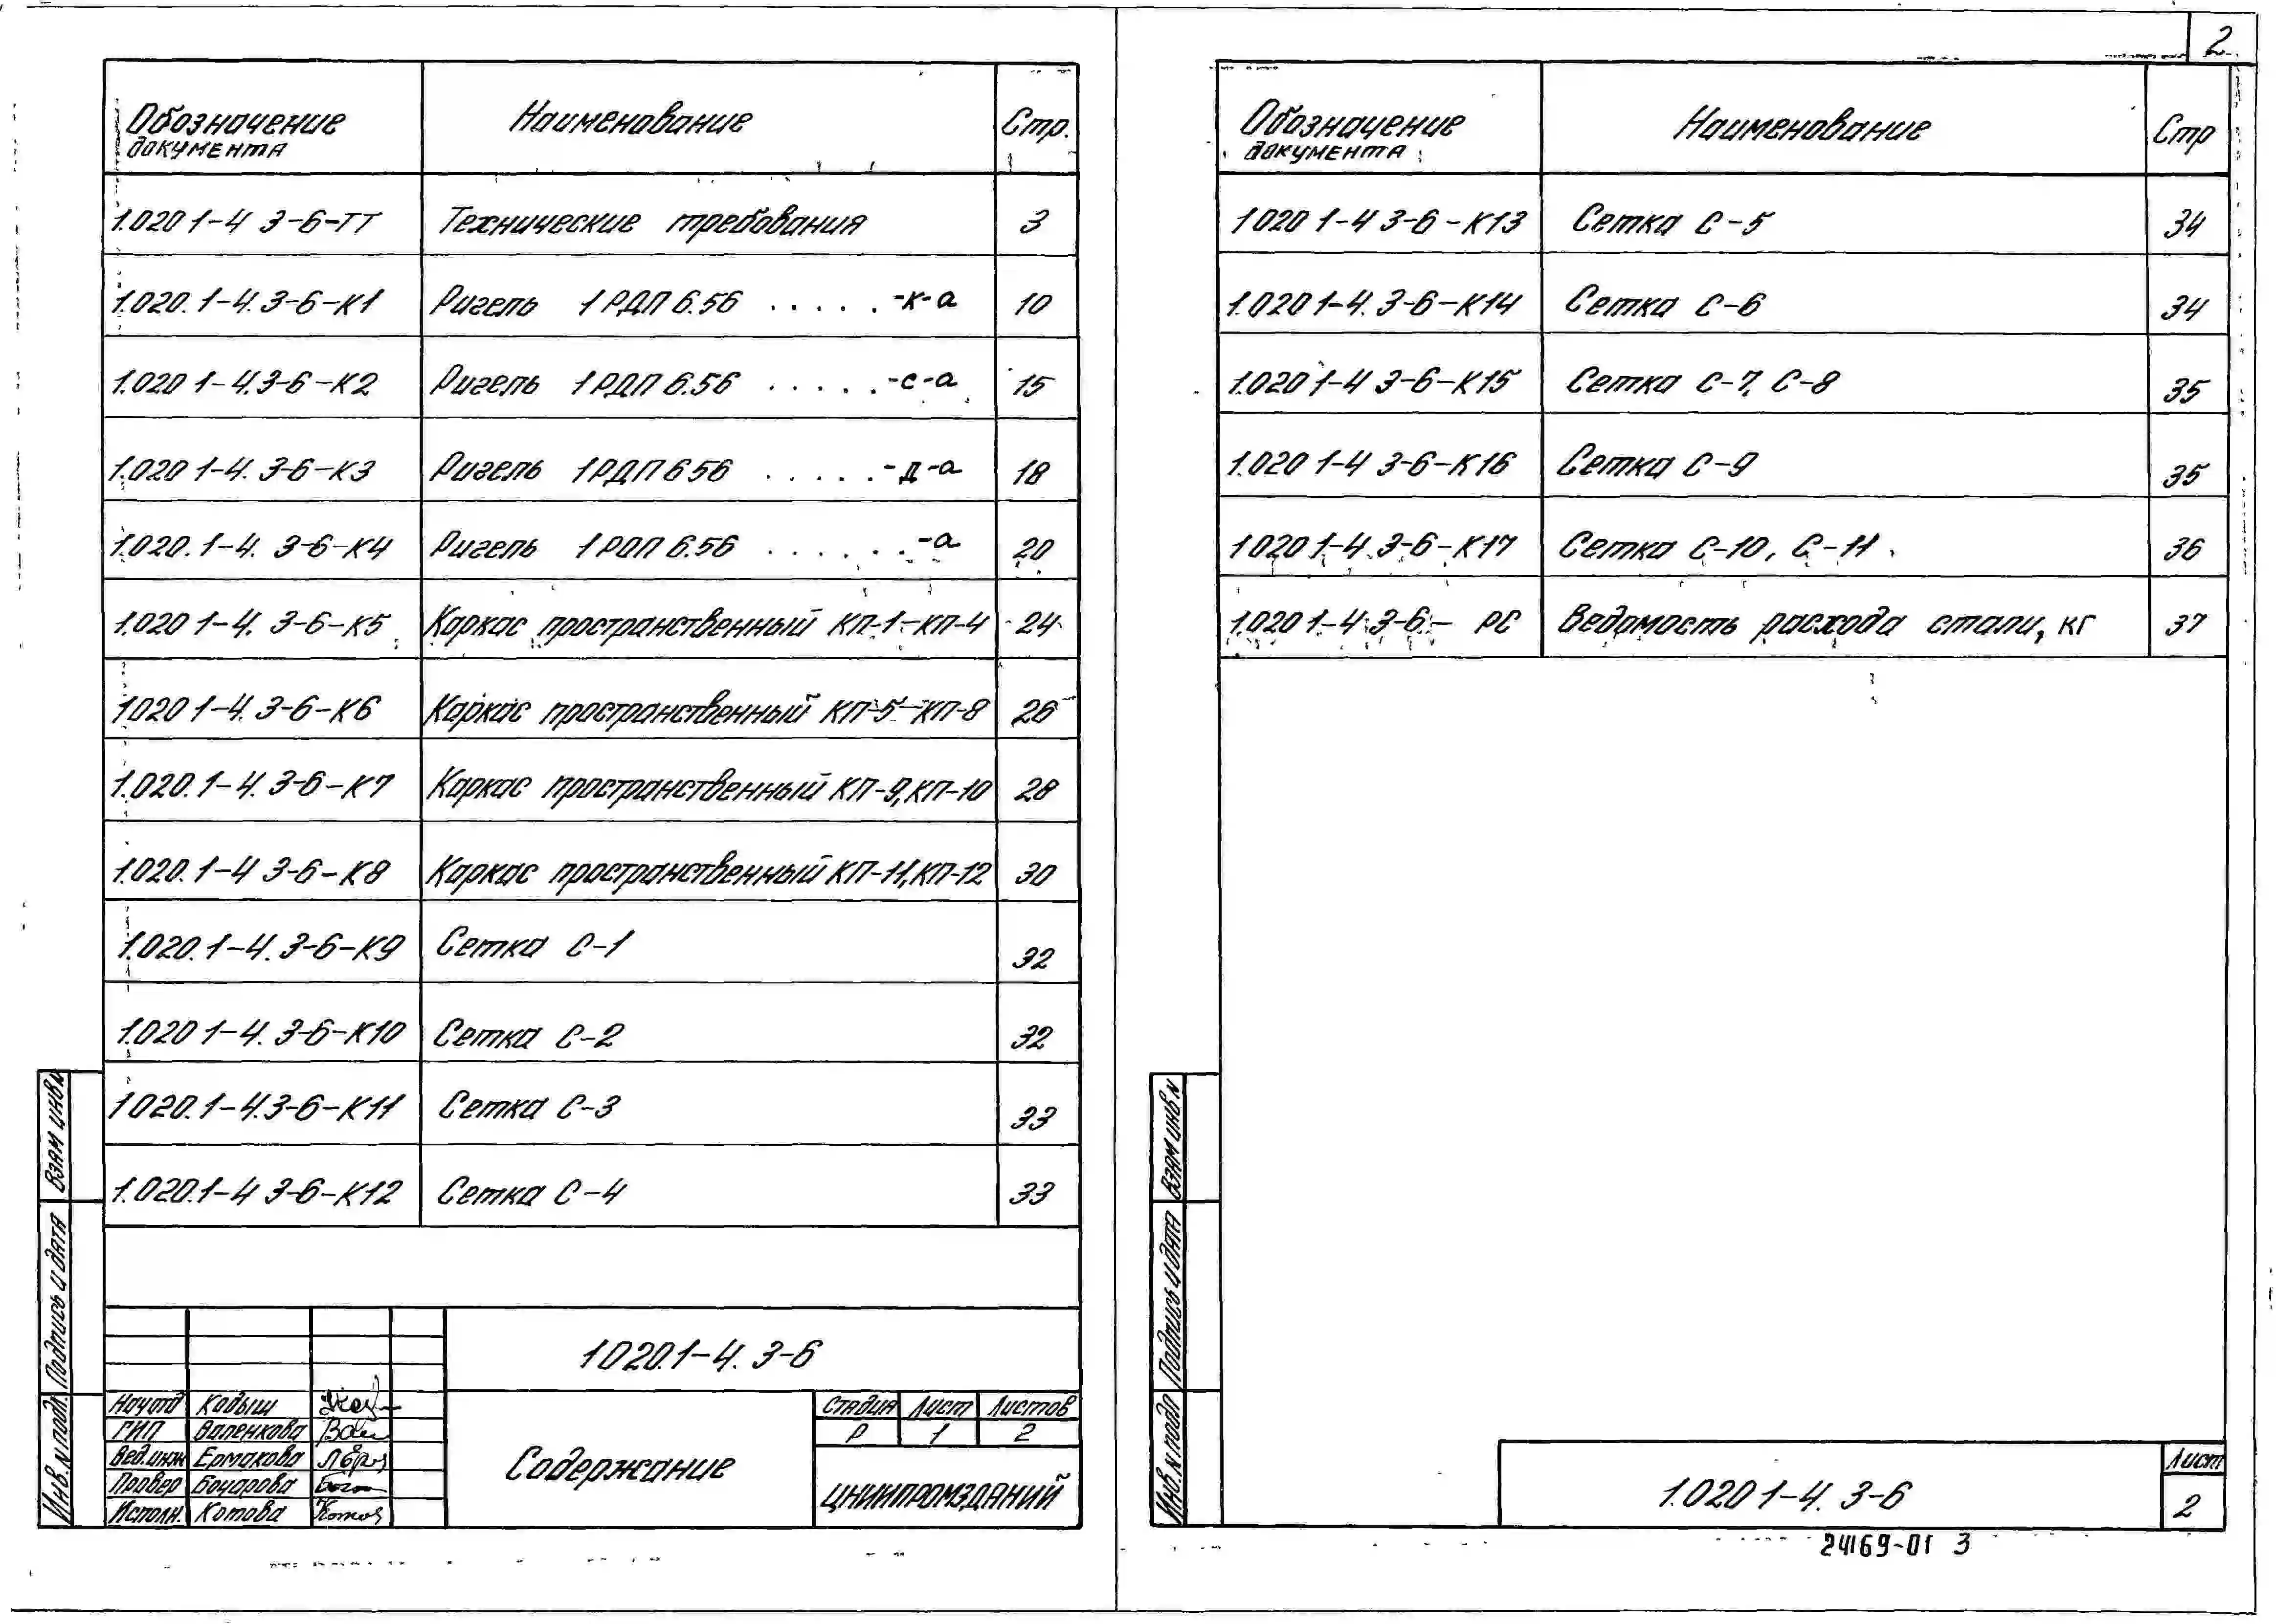 2
Обозначение документа Наименование Стр.
1.020 1-4 3-6-ТТ Технические требования 3
1.020.1-4.3-6-К1 Ригель 1РДП6.56 .....-к-а 10
1.020 1-4.3-6-К2 Ригель 1РДП6.56 .....-с-а 15
1.020 1-4.3-6-К3 Ригель 1РДП656 .....-д-а 18
1.020.1-4. 3-6-К4 Ригель 1РОП6.56 ......-а 20
1.020 1-4. 3-6-К5 Каркас пространственный КП-1-КП-4 24
1020 1-4. 3-6-К6 Каркас пространственный КП-5-КП-8 26
1.020.1-4. 3-6-К7 Каркас пространственный КП-9,КП-10 28
1.020.1-4 3-6-К8 Каркас пространственный КП-11,КП-12 30
1.020.1-4. 3-6-К9 Сетка С-1 32
1.020 1-4. 3-6-К10 Сетка С-2 32
1020.1-4.3-6-К11 Сетка С-3 33
1.020.1-4 3-6-К12 Сетка С-4 33
1020.1-4. 3-6
Начотд Кодыш
ГИП Валенкова
Вед.инж Ермакова
Провер Бочарова
Исполн. Котова
Содержание
Стадия Лист Листов
Р 1 2
ЦНИИПРОМЗДАНИЙ
Взам инв.№
Подпись и дата
Инв.№подл.
Обозначение документа Наименование Стр
1020 1-4 3-6-К13 Сетка С-5 34
1.020 1-4.3-6-К14 Сетка С-6 34
1.020 1-4 3-6-К15 Сетка С-7, С-8 35
1.020 1-4 3-6-К16 Сетка С-9 35
1.020 1-4 3-6-К17 Сетка С-10, С-11 36
1.020 1-4 3-6- РС Ведомость расхода стали, кг 37
Взам инв №
Подпись и дата
Инв.№подл
1.020 1-4. 3-6
Лист
2
24169-01 3